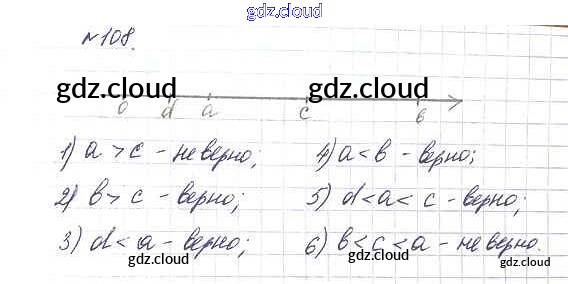 gdz.cloud
№108.
gdz.cloud gdz.cloud
0 d a c в
1) a > c - неверно; 4) a < в - верно;
gdz.cloud
2) в > c - верно; 5) d < a < c - верно;
3) d < a - верно; 6) в < c < a - неверно.
gdz.cloud gdz.cloud